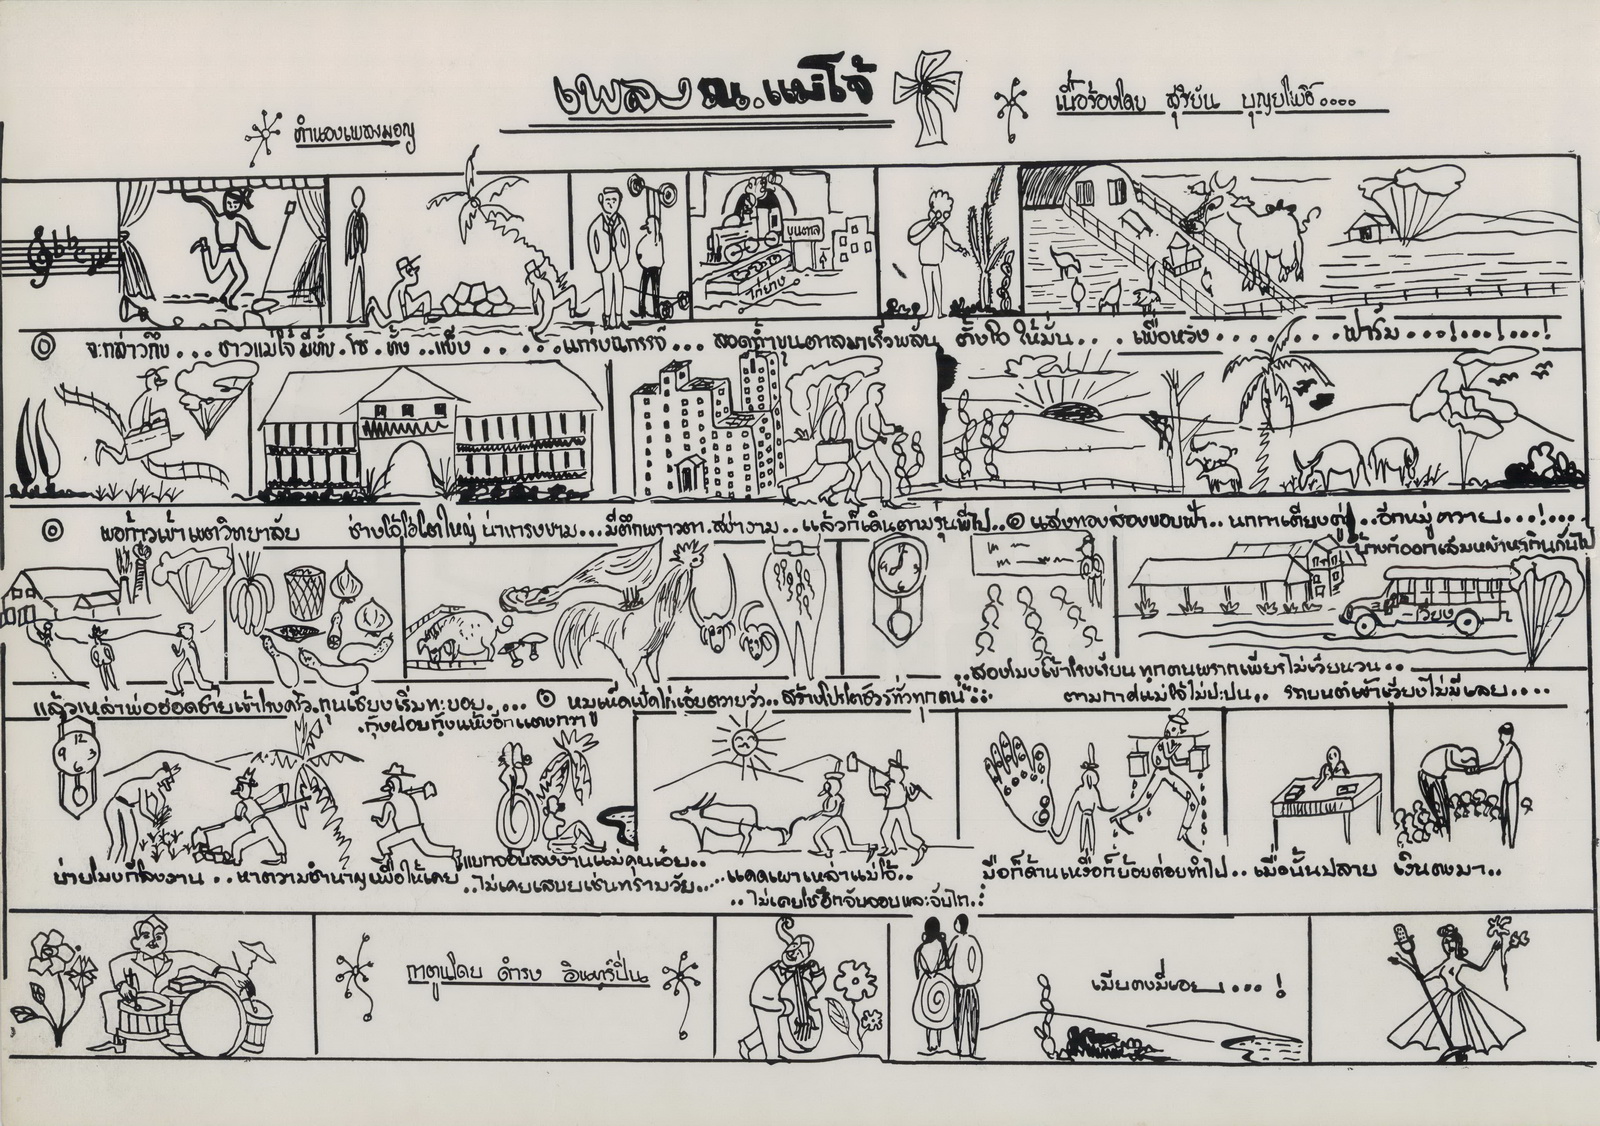 เพลง ณ.แม่โจ้
เนื้อร้องโดย สุริยัน บุญยโพธิ์....
ทำนองเพลงมอญ
ขุนตาล
ไก่ย่าง
จะกล่าวถึง... ชาวแม่โจ้ มีทั้ง.โซ.ทั้ง..แข็ง..... แกร่งฉกรรจ์... ลอดถ้ำขุนตาลมาเร็วพลัน ตั้งใจ ให้มั่น... เพื่อหวัง....... ฟาร์ม...!...!...!
พอก้าวเข้าเขตวิทยาลัย ช่างโอ้โฮโตใหญ่ น่าเกรงขาม...มีตึกพราวตา.สง่างาม..แล้วก็เดินตามรุ่นพี่ไป.. แสงทองส่องขอบฟ้า.. นกกาเคียงคู่..อีกหมู่ควาย...!...
บ้างก็ออกเล็มหญ้าหากินกันไป
แล้วเหล่าพ่อฮอตช้ายเข้าโรงครัว.ทุนเซียงเริ่มทะยอย....
กุ้งฝอยกุ้งแห้งอีกแตงกวา
หมูเห็ดเป็ดไก่เอ๋ยควายวัว..สร้างโปรโตซัวร์ทั่วทุกคน
..สองโมงเข้าโรงเรียน ทุกคนพรากเพียรไม่เวียนวน..
ตามกาศแม่โจ้ไม่ปะปน.. รถยนต์เข้าเวียงไม่มีเลย....
เวียง
12 3 6 9
บ่ายโมงก็ลงงาน..หาความชำนาญเพื่อให้เคย
แบกจอบลงงานแม่คุณเอ๋ย..
..ไม่เคยเสบยเช่นทรามวัย....
..แดดเผาเหล่าแม่โจ้..
..ไม่เคยโซอีกจับจอบและจับไถ.
มือก็ด้านเหงื่อก็ย้อยค่อยทำไป.. เมื่อนั้นปลาย เงินคงมา..
การ์ตูนโดย ดำรง อินทร์ปั่น
เมียคงมี่เอย...!